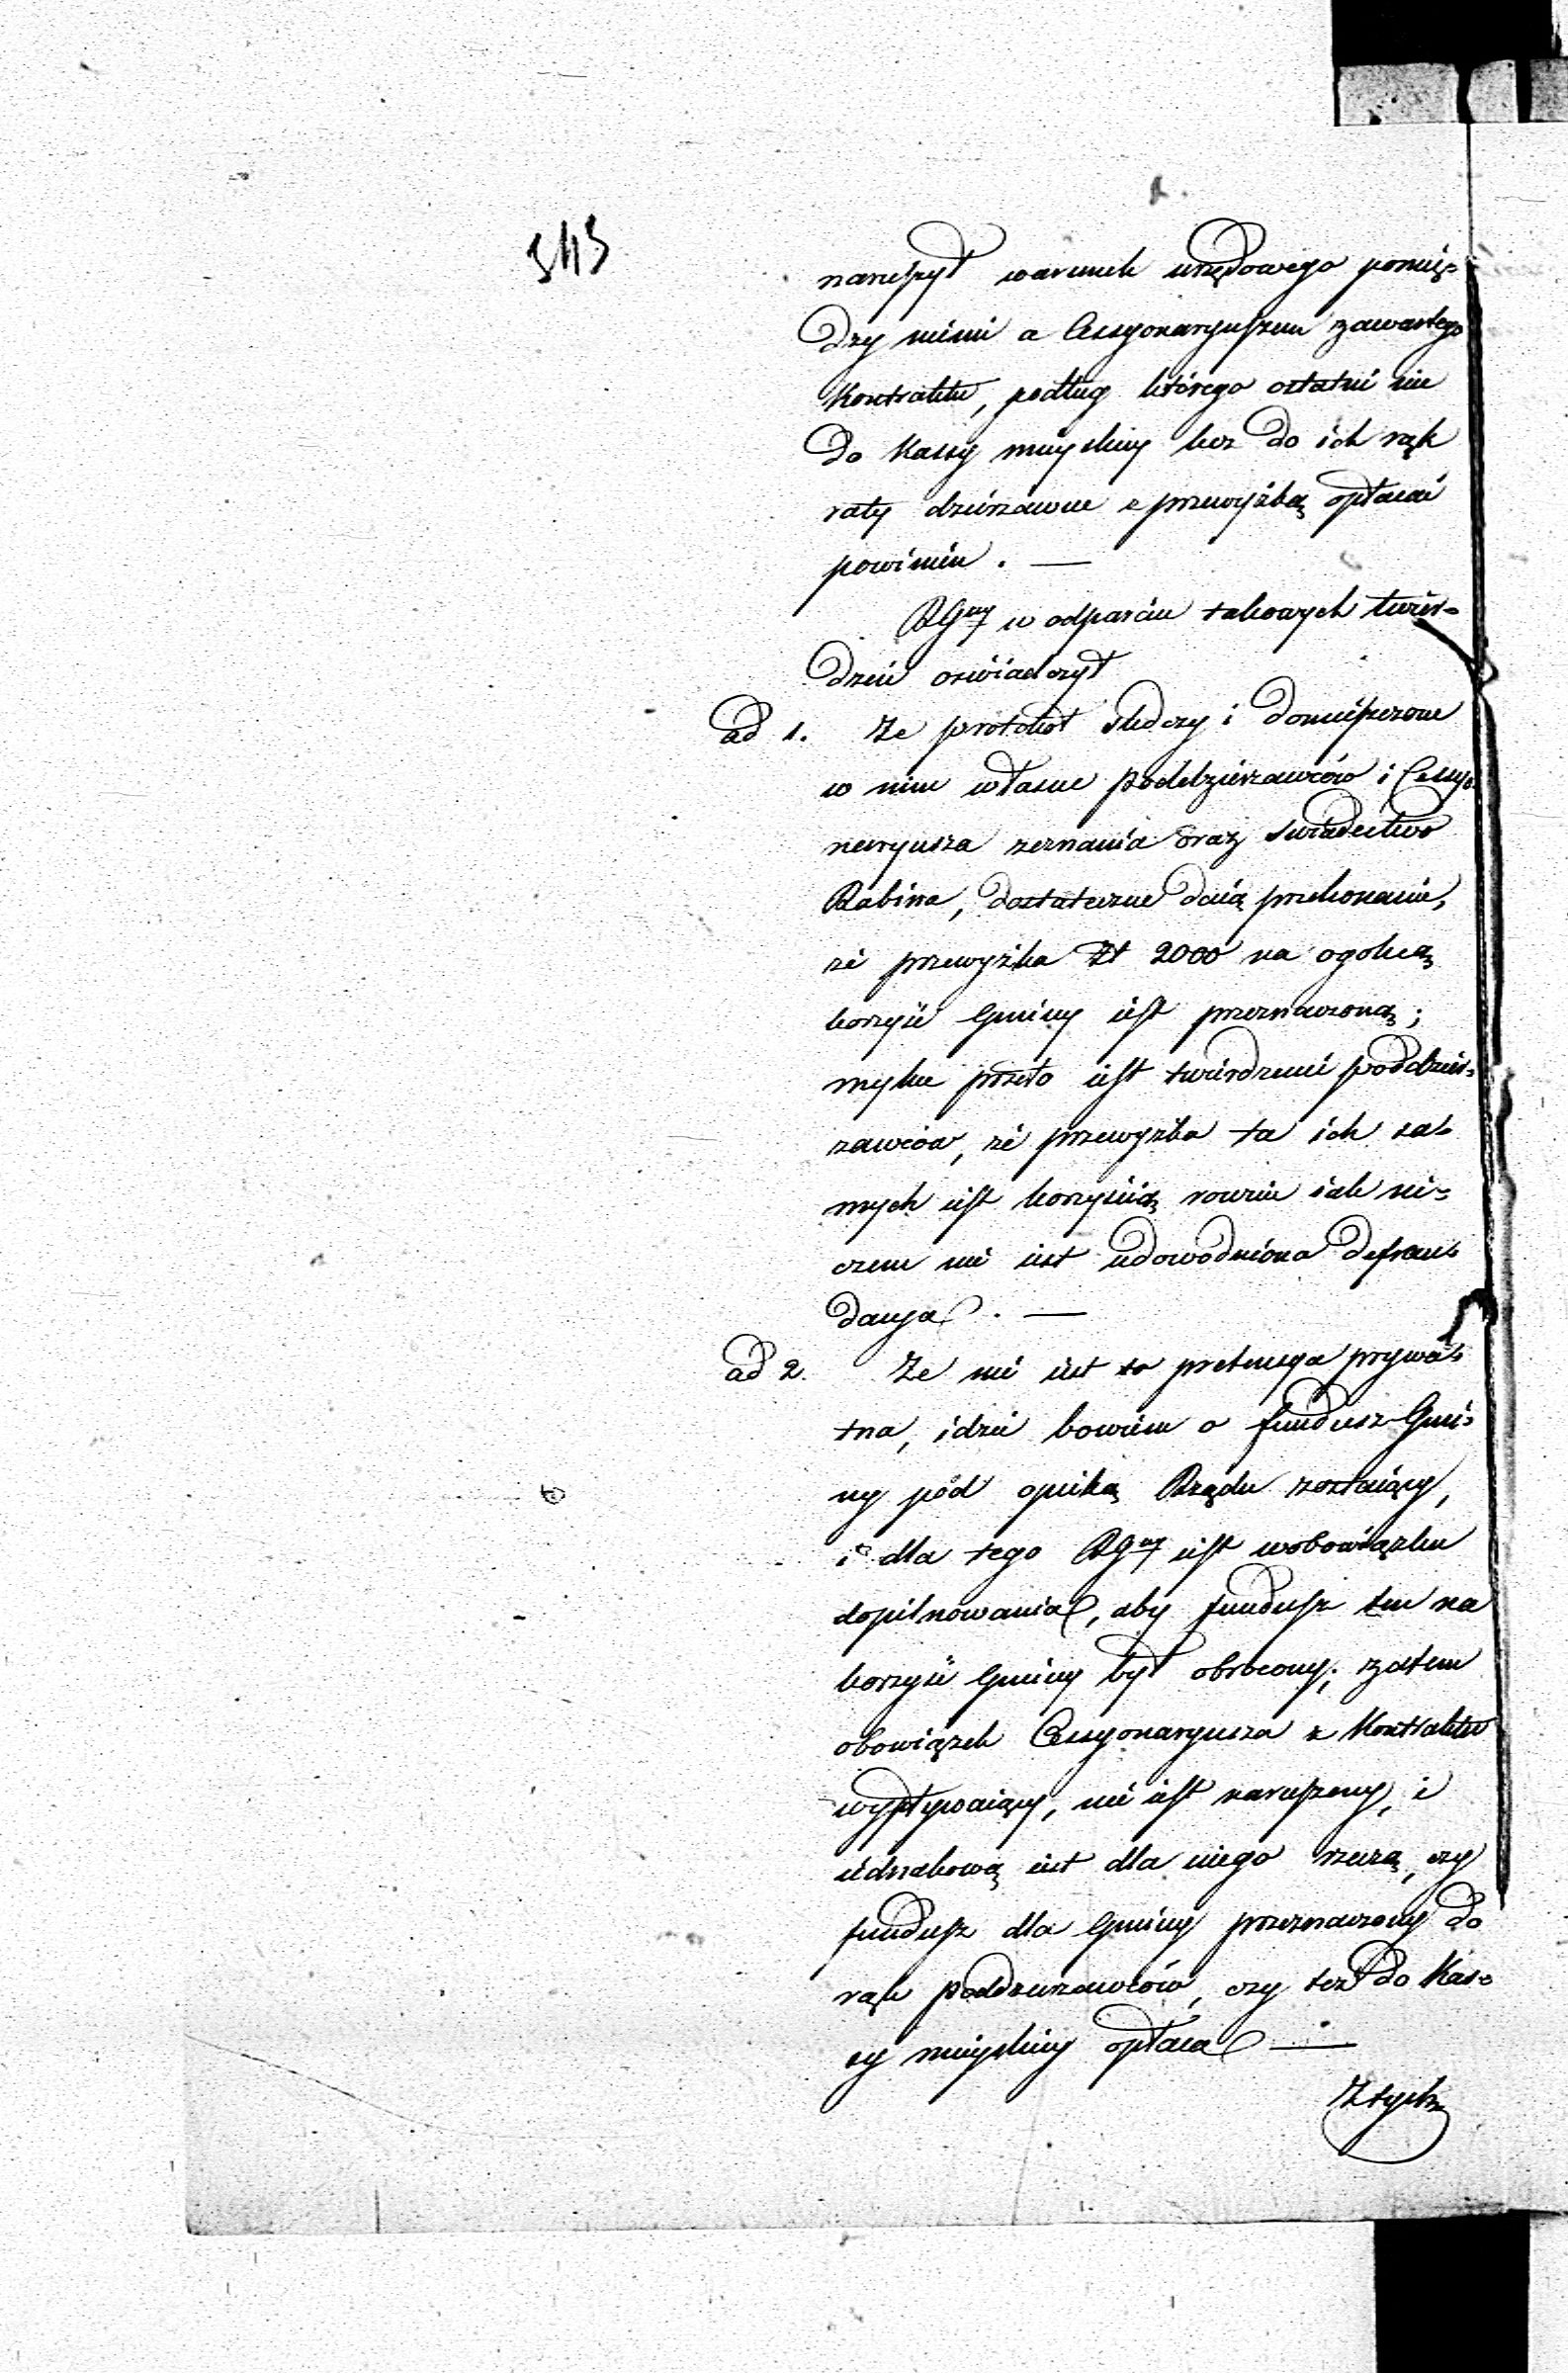 343
naruszył warunek urzędowego pomię-
dzy niemi a Cessyonaryuszem zawartego
Kontraktu, podług którego ostatni nie
do Kassy mieyskiey lecz do ich rąk
raty dzierzawne z przewyżką opłacać
powinien. —
RGny w odparciu takowych twier-
dzeń oswiadczył
ad 1. Ze protokół sledczy i domieszczone
w nim własne poddzierzawców i Cessyo-
naryusza zeznania oraz swiadectwo
Rabina, dostateczne daią przekonanie,
że przewyżka Zł 2000 na ogolną
korzyść Gminy iest przeznaczoną;
mylne przeto iest twierdzenie poddzier-
zawców, że przewyżka ta ich sa-
mych iest korzyścią rownie iak ni-
czem nie iest udowodniona defrau-
dacya. —
ad 2. Ze nie iest to pretensya prywa-
tna, idzie bowiem o fundusz Gmi-
ny pod opieką Rządu zostaiący,
i dla tego RGny iest wobowiązku
dopilnowania, aby fundusz ten na
korzyść Gminy był obrócony; zatem
obowiązek Cessyonaryusza z Kontraktu
wypływaiący, nie iest naruszony, i
iednakową iest dla niego rzeczą, czy
fundusz dla Gminy przeznaczony do
rąk poddzierzawców, czy też do Kas-
sy mieyskiey opłaca —
Ztych